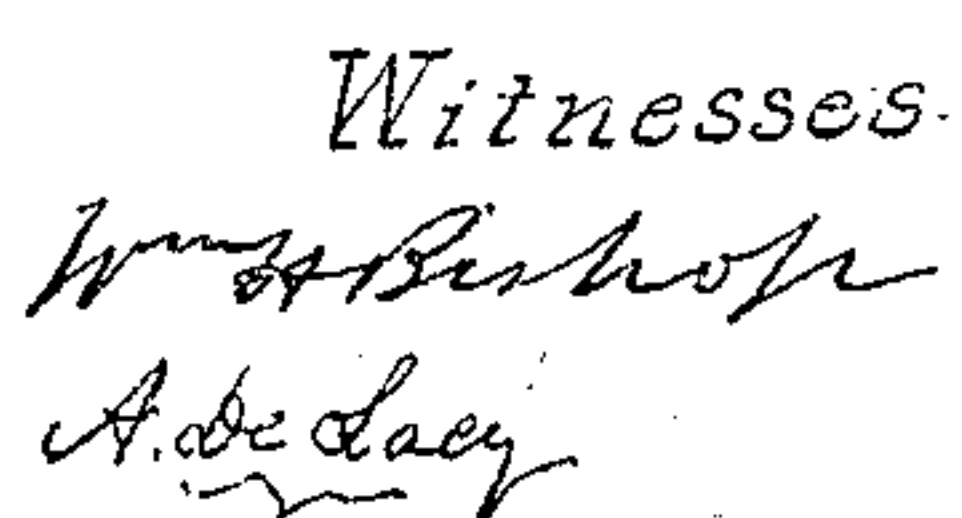 Witnesses.
Wm H Bishop
A. De Lacy